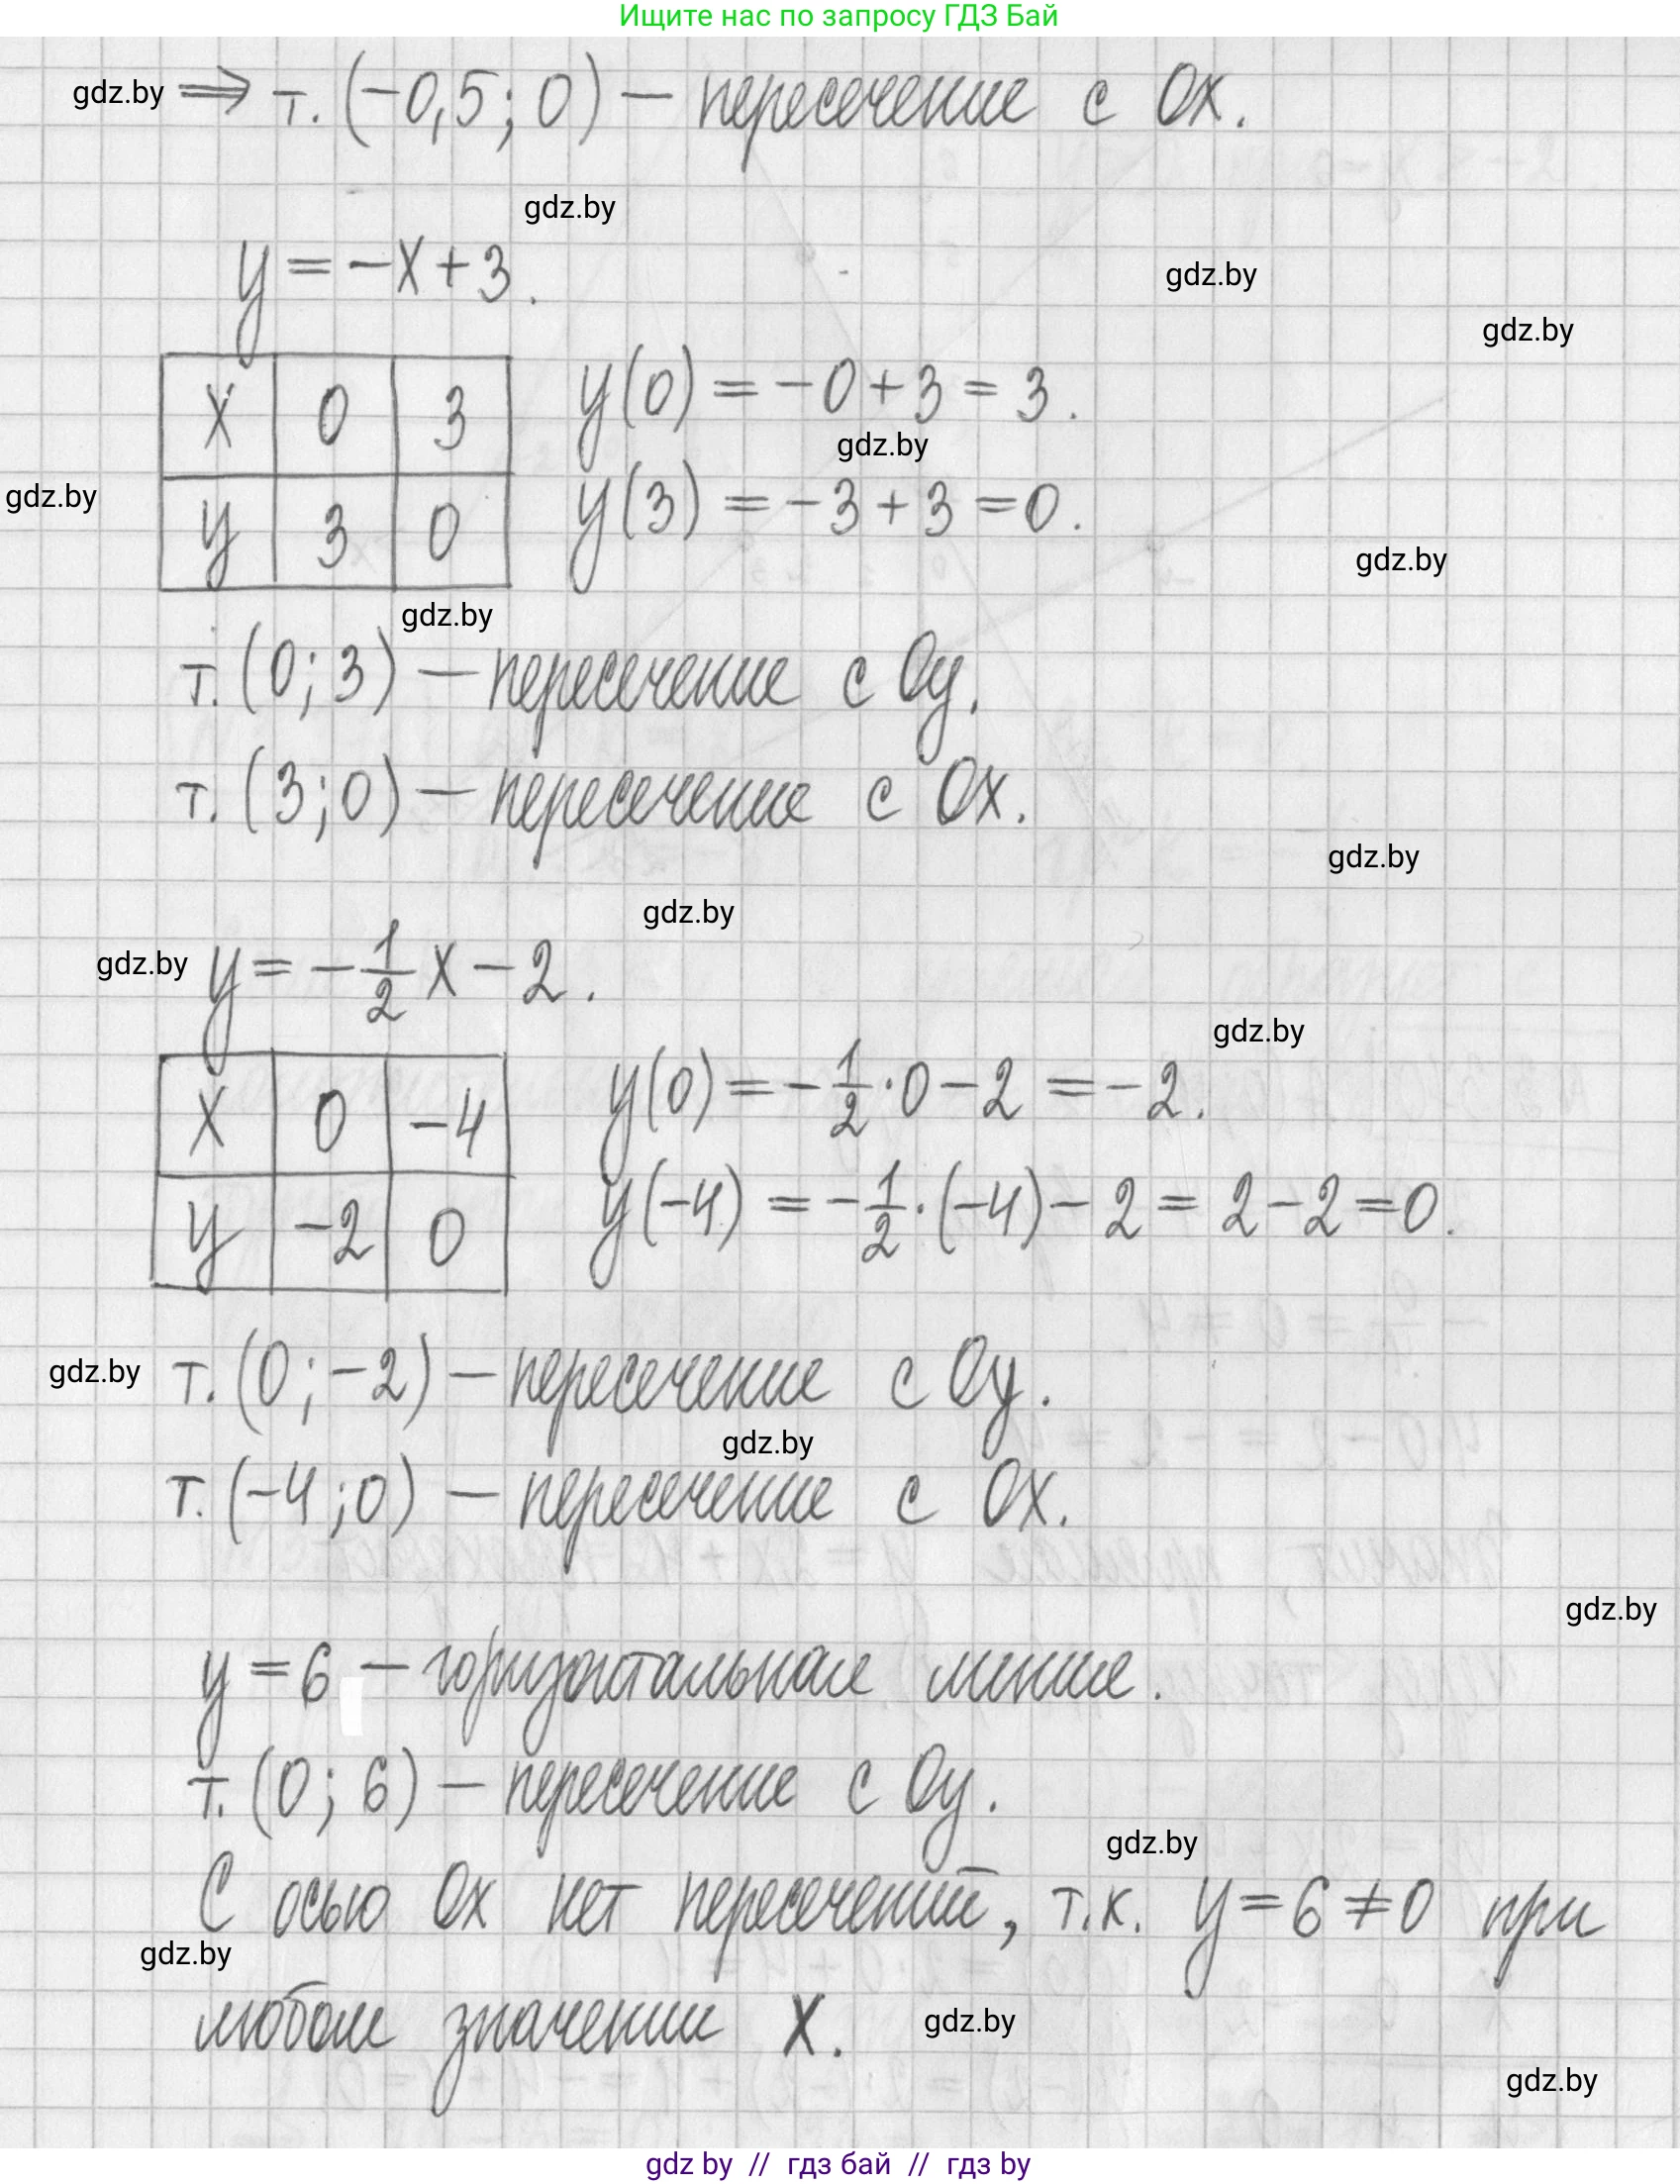 Ищите нас по запросу ГДЗ Бай
gdz.by ⇒ т. (−0,5; 0) − пересечение с Ox.
gdz.by
y = −x + 3.
gdz.by
gdz.by
x 0 3
y(0) = −0 + 3 = 3.
gdz.by
gdz.by
y 3 0
y(3) = −3 + 3 = 0.
gdz.by
gdz.by
т. (0; 3) − пересечение с Oy.
т. (3; 0) − пересечение с Ox.
gdz.by
gdz.by
gdz.by y = −1/2 x − 2.
gdz.by
x 0 −4
y(0) = −1/2 · 0 − 2 = −2.
y −2 0
y(−4) = −1/2 · (−4) − 2 = 2 − 2 = 0.
gdz.by т. (0; −2) − пересечение с Oy.
gdz.by
т. (−4; 0) − пересечение с Ox.
gdz.by
y = 6 − горизонтальная линия.
т. (0; 6) − пересечение с Oy.
gdz.by
С осью Ox нет пересечений, т.к. y = 6 ≠ 0 при
gdz.by
любом значении x.
gdz.by
gdz.by
gdz by // гдз бай // гдз by